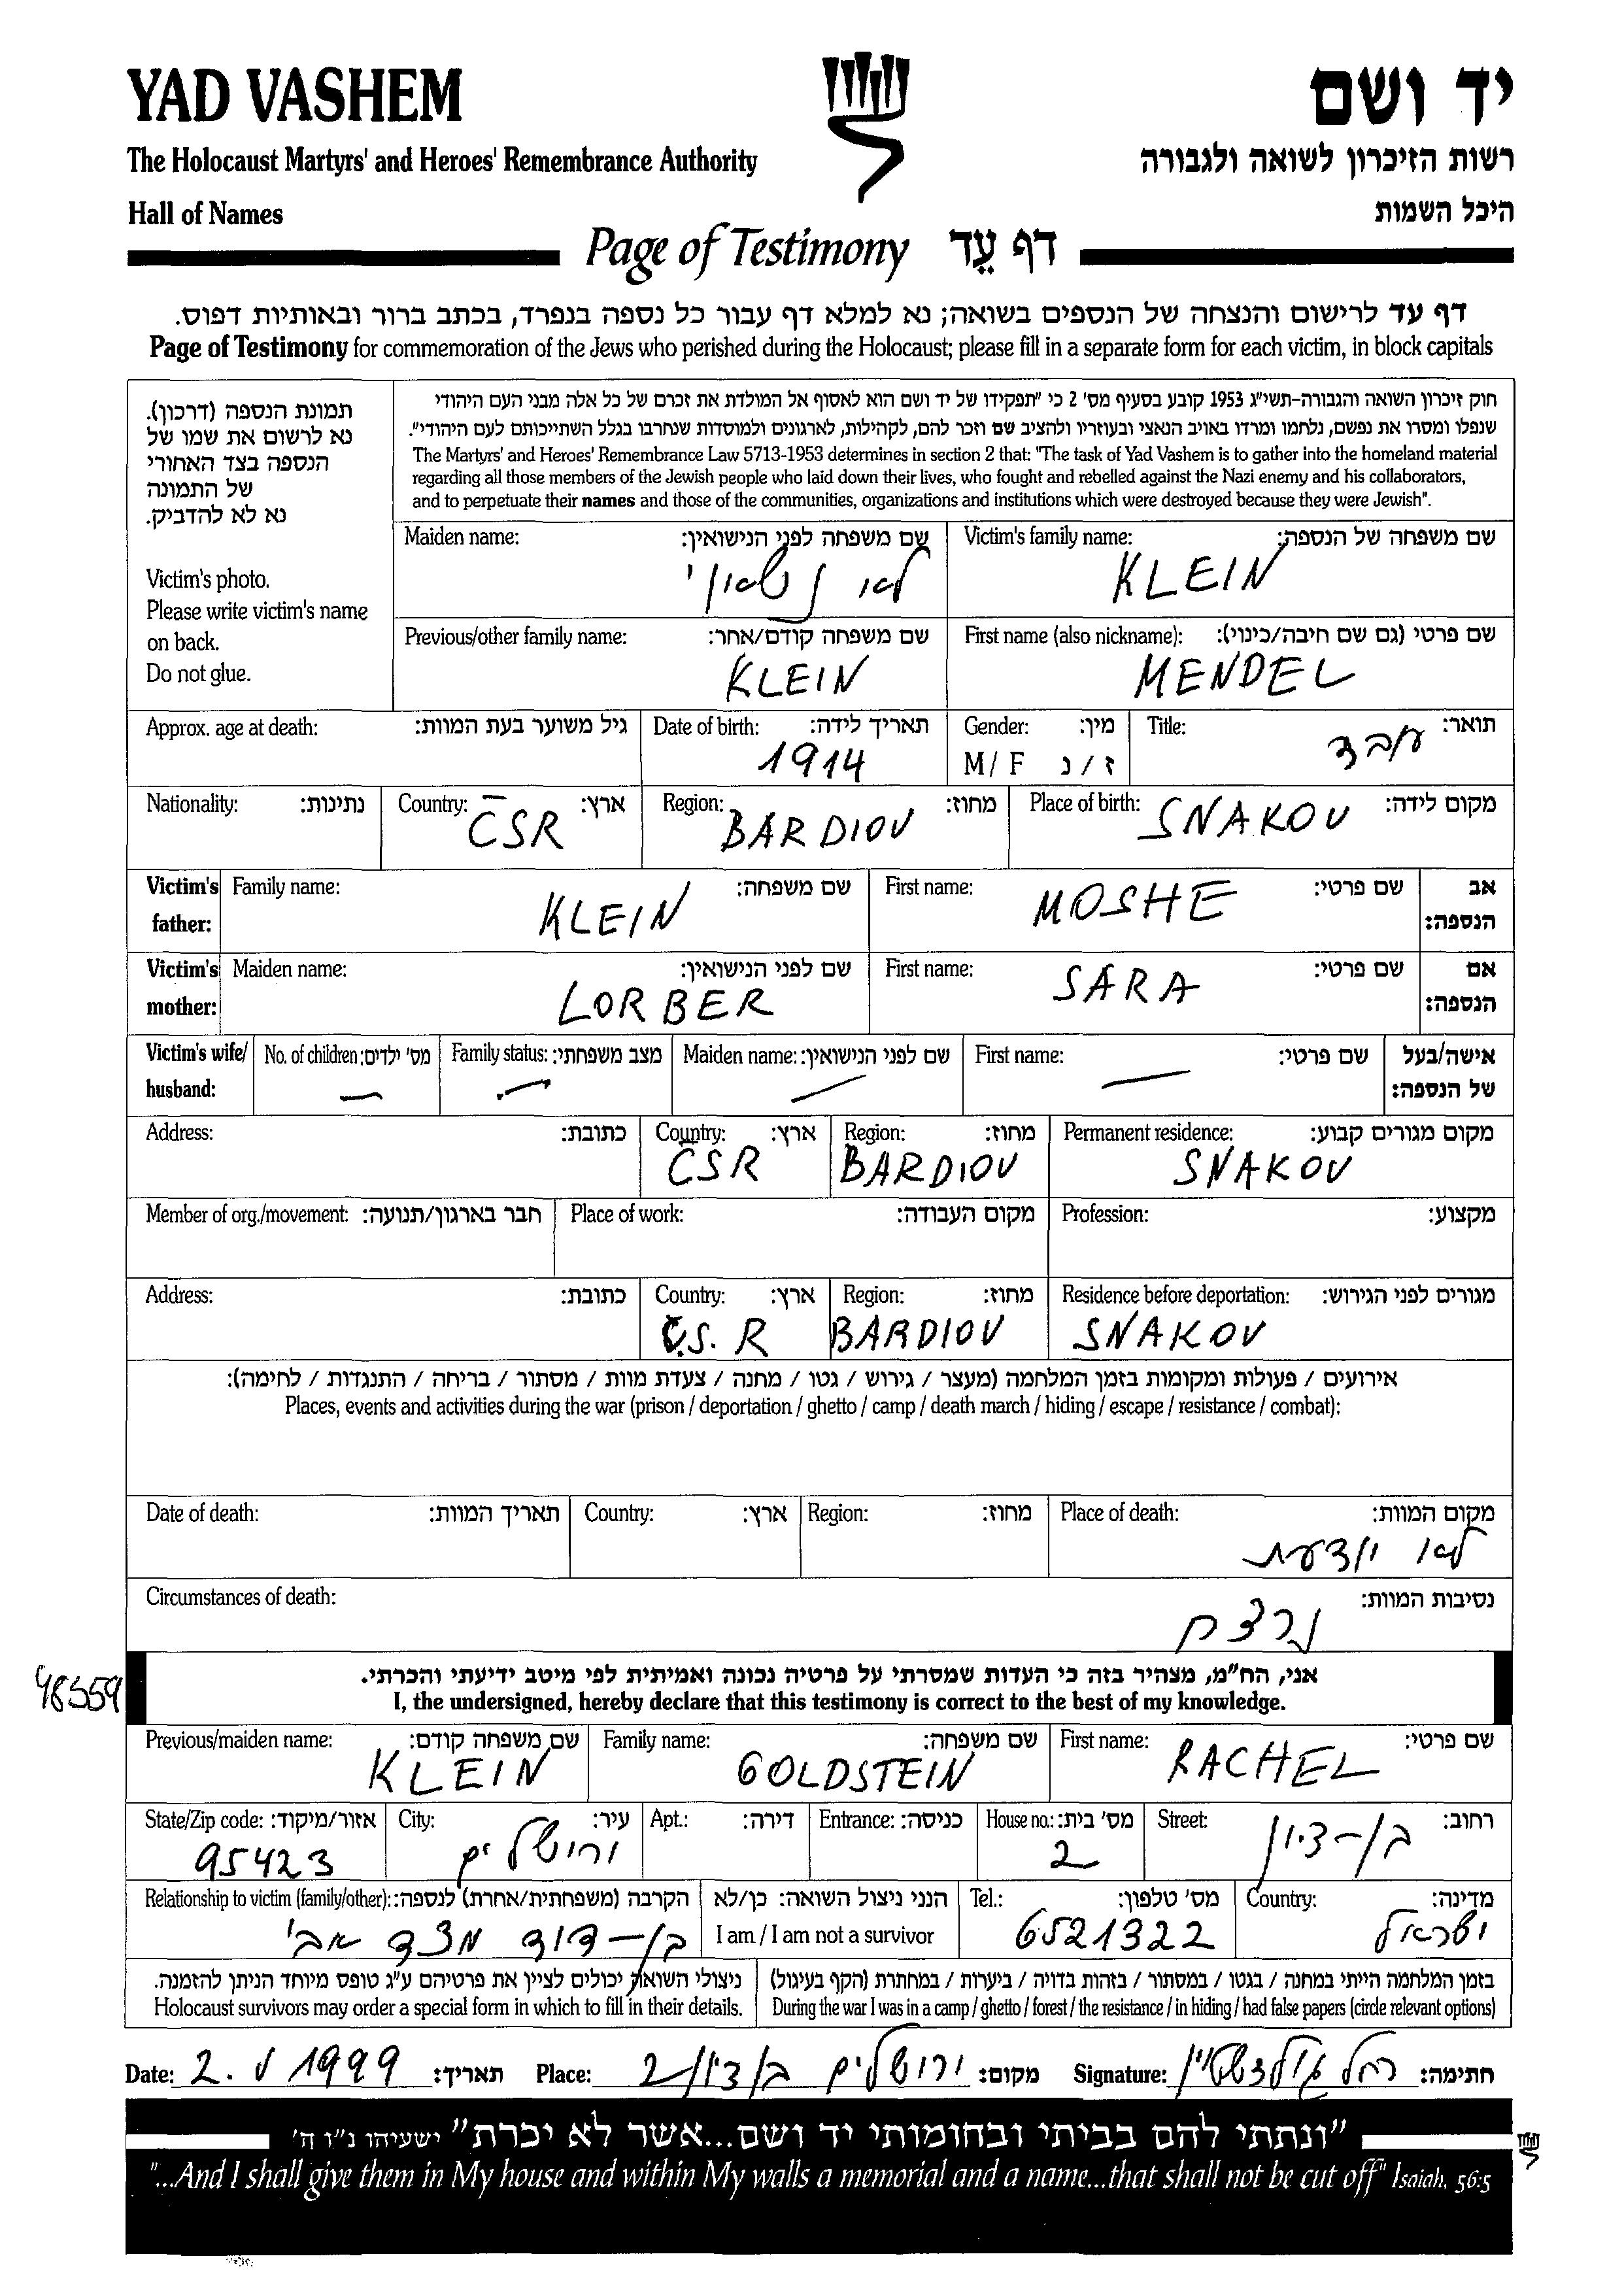 YAD VASHEM
יד ושם
The Holocaust Martyrs' and Heroes' Remembrance Authority
רשות הזיכרון לשואה ולגבורה
Hall of Names
היכל השמות
Page of Testimony דף עֵד
דף עד לרישום והנצחה של הנספים בשואה; נא למלא דף עבור כל נספה בנפרד, בכתב ברור ובאותיות דפוס.
Page of Testimony for commemoration of the Jews who perished during the Holocaust; please fill in a separate form for each victim, in block capitals
תמונת הנספה (דרכון).
נא לרשום את שמו של
הנספה בצד האחורי
של התמונה
נא לא להדביק.
Victim's photo.
Please write victim's name
on back.
Do not glue.
חוק זיכרון השואה והגבורה-תשי"ג 1953 קובע בסעיף מס' 2 כי "תפקידו של יד ושם הוא לאסוף אל המולדת את זכרם של כל אלה מבני העם היהודי
שנפלו ומסרו את נפשם, נלחמו ומרדו באויב הנאצי ובעוזריו ולהציב שם וזכר להם, לקהילות, לארגונים ולמוסדות שנחרבו בגלל השתייכותם לעם היהודי".
The Martyrs' and Heroes' Remembrance Law 5713-1953 determines in section 2 that: "The task of Yad Vashem is to gather into the homeland material
regarding all those members of the Jewish people who laid down their lives, who fought and rebelled against the Nazi enemy and his collaborators,
and to perpetuate their names and those of the communities, organizations and institutions which were destroyed because they were Jewish".
Maiden name: שם משפחה לפני הנישואין:
לא נשאוי
Victim's family name: שם משפחה של הנספה:
KLEIN
Previous/other family name: שם משפחה קודם/אחר:
KLEIN
First name (also nickname): שם פרטי (גם שם חיבה/כינוי):
MENDEL
Approx. age at death: גיל משוער בעת המוות:
Date of birth: תאריך לידה:
1914
Gender: מין:
M/ F ז / נ
Title: תואר:
Nationality: נתינות:
Country: ארץ:
CSR
Region: מחוז:
BARDIOV
Place of birth: מקום לידה:
SNAKOV
Victim's father: Family name: שם משפחה:
KLEIN
First name: שם פרטי: אב הנספה:
MOSHE
Victim's mother: Maiden name: שם לפני הנישואין:
LORBER
First name: שם פרטי: אם הנספה:
SARA
Victim's wife/ husband: No. of children: מס' ילדים:
—
Family status: מצב משפחתי:
Maiden name: שם לפני הנישואין:
First name: שם פרטי: אישה/בעל של הנספה:
Address: כתובת:
Country: ארץ:
CSR
Region: מחוז:
BARDIOV
Permanent residence: מקום מגורים קבוע:
SNAKOV
Member of org./movement: חבר בארגון/תנועה:
Place of work: מקום העבודה:
Profession: מקצוע:
Address: כתובת:
Country: ארץ:
C.S. R
Region: מחוז:
BARDIOV
Residence before deportation: מגורים לפני הגירוש:
SNAKOV
אירועים / פעולות ומקומות בזמן המלחמה (מעצר / גירוש / גטו / מחנה / צעדת מוות / מסתור / בריחה / התנגדות / לחימה):
Places, events and activities during the war (prison / deportation / ghetto / camp / death march / hiding / escape / resistance / combat):
Date of death: תאריך המוות:
Country: ארץ:
Region: מחוז:
Place of death: מקום המוות:
לא יודעת
Circumstances of death: נסיבות המוות:
נרצח
48559
אני, הח"מ, מצהיר בזה כי העדות שמסרתי על פרטיה נכונה ואמיתית לפי מיטב ידיעתי והכרתי.
I, the undersigned, hereby declare that this testimony is correct to the best of my knowledge.
Previous/maiden name: שם משפחה קודם:
KLEIN
Family name: שם משפחה:
GOLDSTEIN
First name: שם פרטי:
RACHEL
State/Zip code: אזור/מיקוד:
95423
City: עיר:
ירושלים
Apt.: דירה:
Entrance: כניסה:
House no.: מס' בית:
2
Street: רחוב:
בן-ציון
Relationship to victim (family/other): הקרבה (משפחתית/אחרת) לנספה:
בן-דוד מצד אבי
הנני ניצול השואה: כן/לא
I am / I am not a survivor
Tel.: מס' טלפון:
6521322
Country: מדינה:
ישראל
ניצולי השואה יכולים לציין את פרטיהם ע"ג טופס מיוחד הניתן להזמנה.
Holocaust survivors may order a special form in which to fill in their details.
בזמן המלחמה הייתי במחנה / בגטו / במסתור / בזהות בדויה / ביערות / במחתרת (הקף בעיגול)
During the war I was in a camp / ghetto / forest / the resistance / in hiding / had false papers (circle relevant options)
Date: 2. V 1999 תאריך: Place: ירושלים בן ציון 2 מקום: Signature: רחל גולדשטיין חתימה:
"ונתתי להם בביתי ובחומותי יד ושם...אשר לא יכרת" ישעיהו נ"ו ה'
"...And I shall give them in My house and within My walls a memorial and a name...that shall not be cut off" Isaiah, 56:5